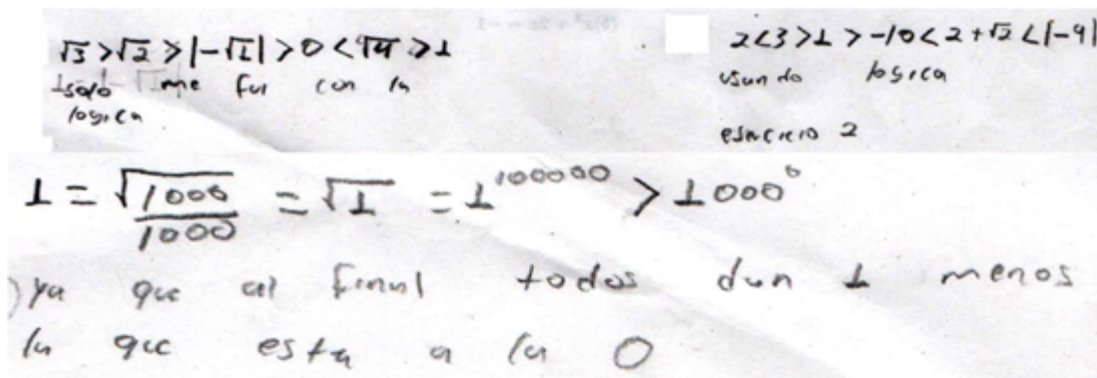 √3 > √2 > |-√1| > 0 < √4 > 1
solo me fui con la
logica
2<3>1>-10<2+√2<|-9|
usando logica
esercicio 2
1 = √1000/1000 = √1 = 1^100000 > 1000^0
ya que al final todos dan 1 menos
la que esta a la 0